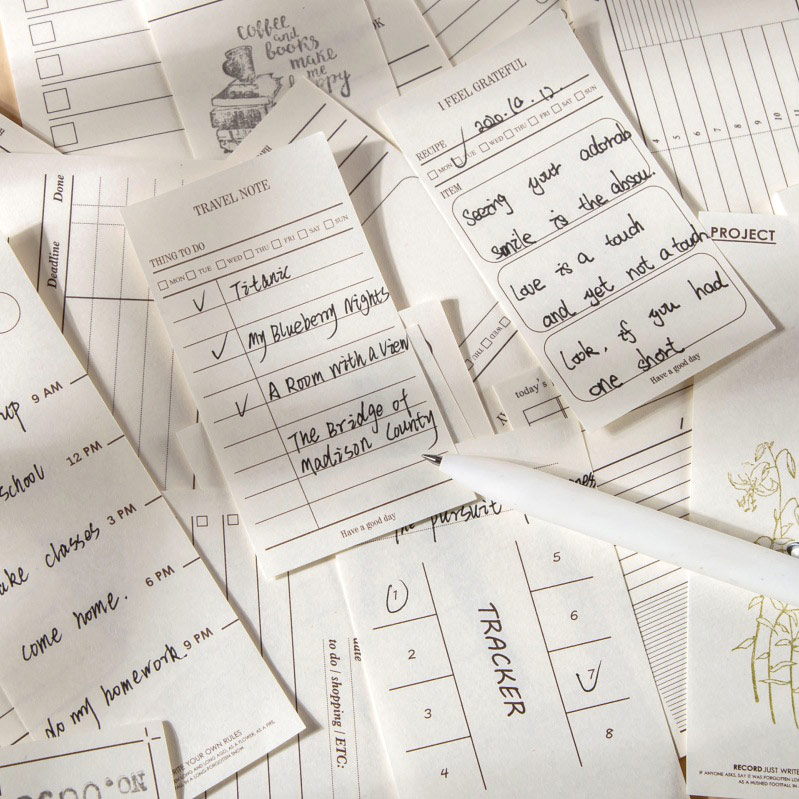 coffee
and
books
make
me
happy
TRAVEL NOTE
THING TO DO
MON TUE WED THU FRI SAT SUN
Titanic
My Blueberry Nights
A Room with a View
The Bridge of
Madison County
Have a good day
I FEEL GRATEFUL
RECIPE
MON TUE WED THU FRI SAT SUN
ITEM
Seeing your adorab
smile is the absou..
Love is a touch
and yet not a touch
Look, if you had
one short
Have a good day
Done
Deadline
4 5 6 7 8 9 10 11
PROJECT
today's
up
9 AM
school
12 PM
ake classes
3 PM
come home.
6 PM
do my homework.
9 PM
RITE YOUR OWN RULES
The pursuit
TRACKER
1
2
3
4
5
6
7
8
date
to do | shopping | ETC:
RECORD JUST WRITE
IF ANYONE ASKS, SAY IT WAS FORGOTTEN
AS A HUSHED FOOTFALL IN